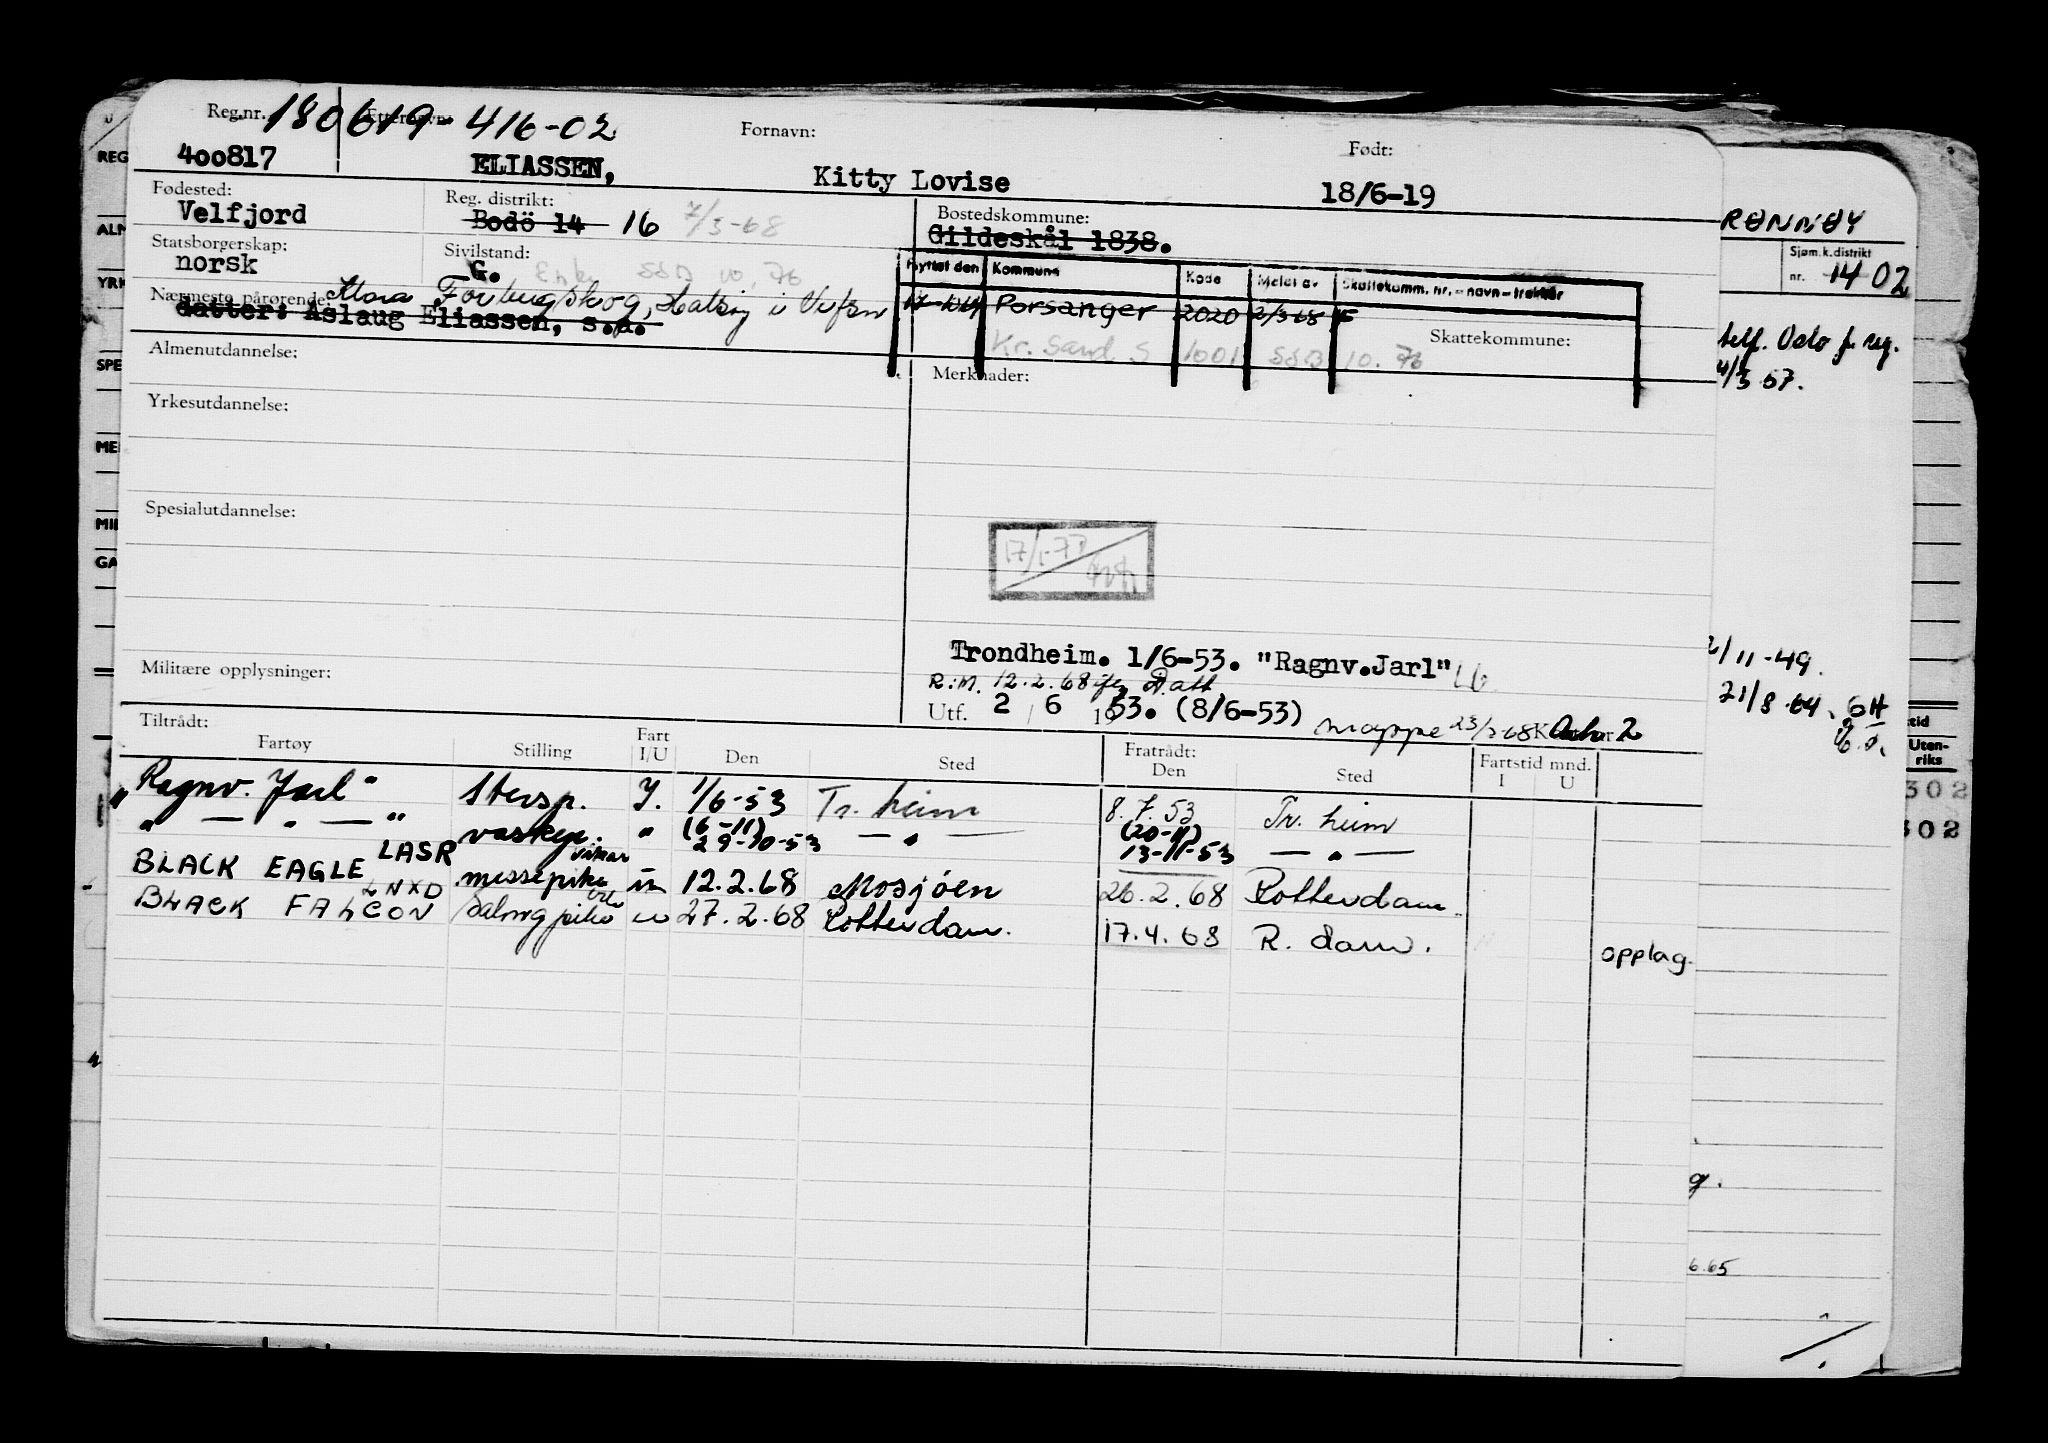 Reg.nr. 180619-416-02 Fornavn: Født:
400817 ELIASSEN, Kitty Lovise 18/6-19
Fødested: Reg. distrikt: Bostedskommune:
Velfjord Bodö 14 16 7/3-68 Gildeskål 1838.
Statsborgerskap: Sivilstand:
norsk G. Enke SSB 10.76
Flyttet den Kommune Kode Meldt av Skattekomm. nr. - navn - trekkår
Nærmeste pårørende:
datter: Aslaug Eliassen, s.a. i Vefsn
Porsanger 2020 2/3 68
Kr. Sand S 1001 SSB 10. 76
Skattekommune:
Almenutdannelse: Merknader:
Yrkesutdannelse:
Spesialutdannelse:
17/1-77
Militære opplysninger:
Trondheim. 1/6-53. "Ragnv.Jarl" 16
R.M. 12.2.68
Utf. 2 / 6 1953. (8/6-53) mappe 23/2 68 Oslo 2
Tiltrådt: Fratrådt:
Fartøy Stilling Fart I/U Den Sted Den Sted Fartstid mnd. I U
"Ragnv. Jarl" I. 1/6-53 Tr. heim 8.7.53 Tr. heim
" — " — " vaskep. " (6-11) 29-10-53 — " — (20-11) 13-11-53 — " —
BLACK EAGLE LASR messepike 12.2.68 Mosjøen 26.2.68 Rotterdam
BLACK FALCON LNXD Salongpike u 27.2.68 Rotterdam. 17.4.68 R. dam. opplag.
RØNNØY
Sjøm.k.distrikt
nr. 14 02
telf. Oslo f. reg.
4/3 57.
/11-49.
21/8-64. GH
Uten-
riks
302
302
g.
6.65
REG
ALM
YRK
SPE
MEI
MIL
GA